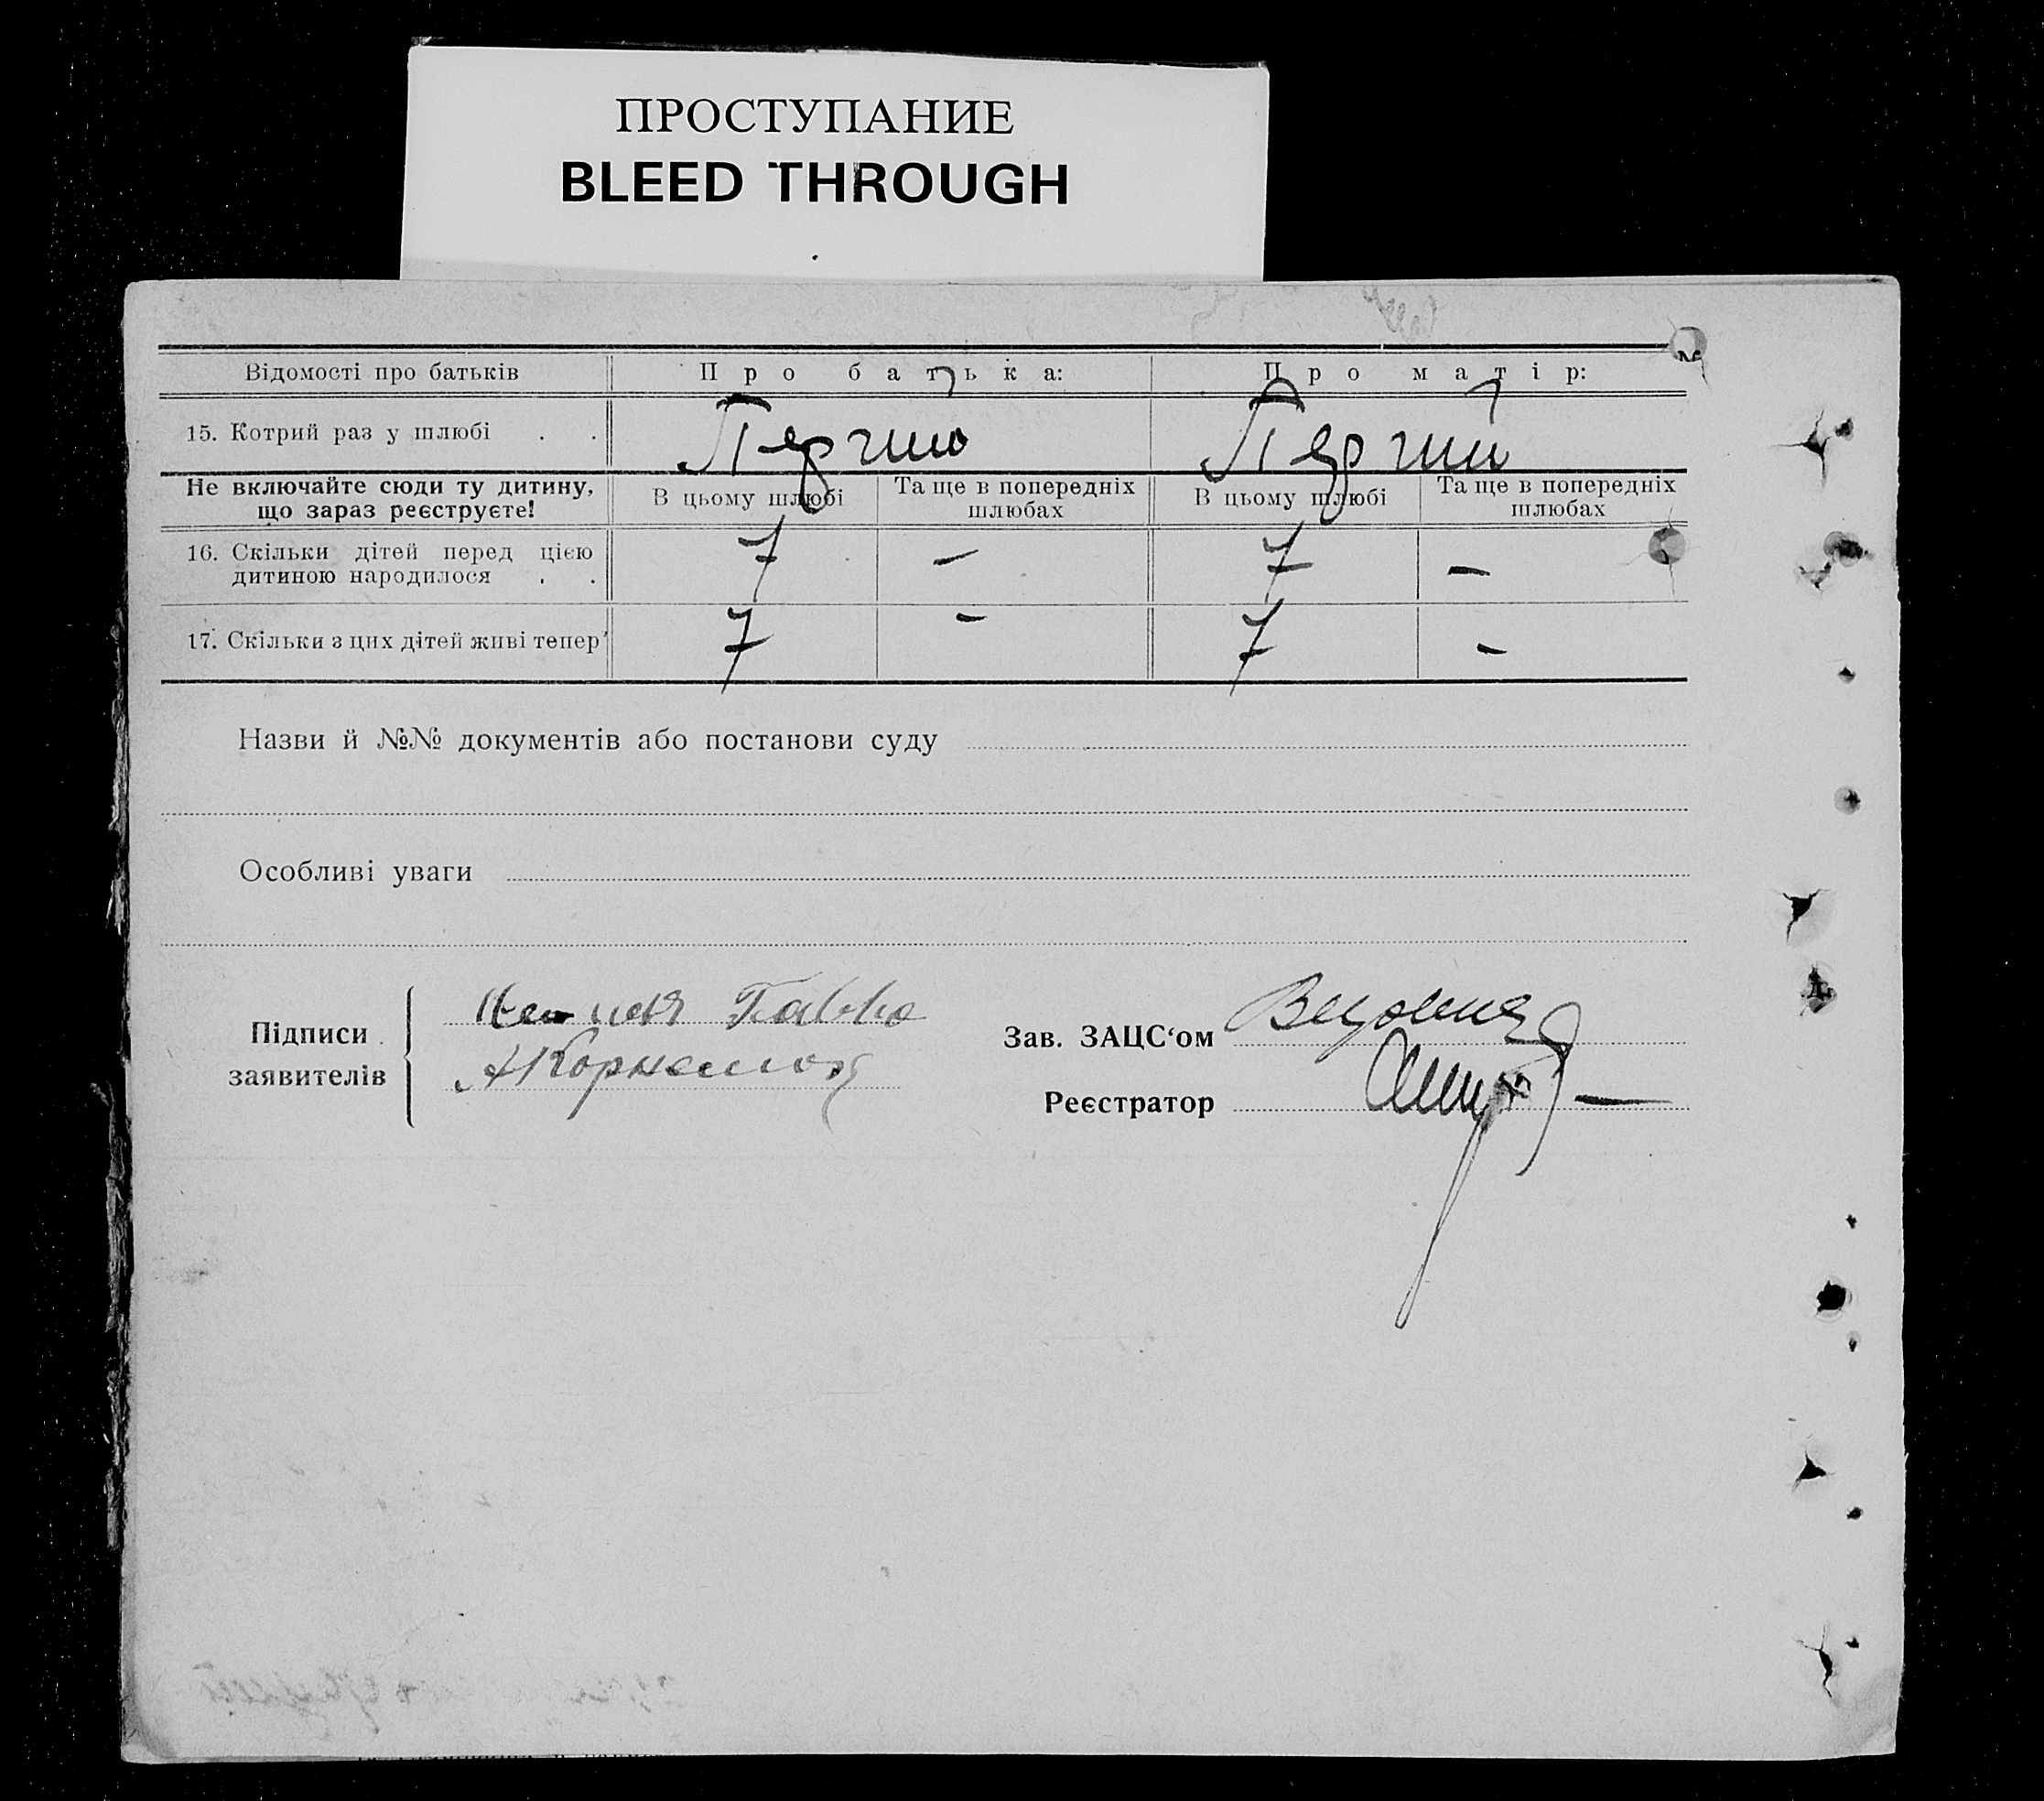 ПРОСТУПАНИЕ
BLEED THROUGH
Відомості про батьків Про батька: Про матір:
15. Котрий раз у шлюбі . . Перший Перший
Не включайте сюди ту дитину, що зараз реєструєте! В цьому шлюбі Та ще в попередніх шлюбах В цьому шлюбі Та ще в попередніх шлюбах
16. Скільки дітей перед цією дитиною народилося . . 7 — 7 —
17. Скільки з цих дітей живі тепер 7 — 7 —
Назви й №№ документів або постанови суду
Особливі уваги
Підписи заявителів
Зав. ЗАЦС‘ом
Реєстратор